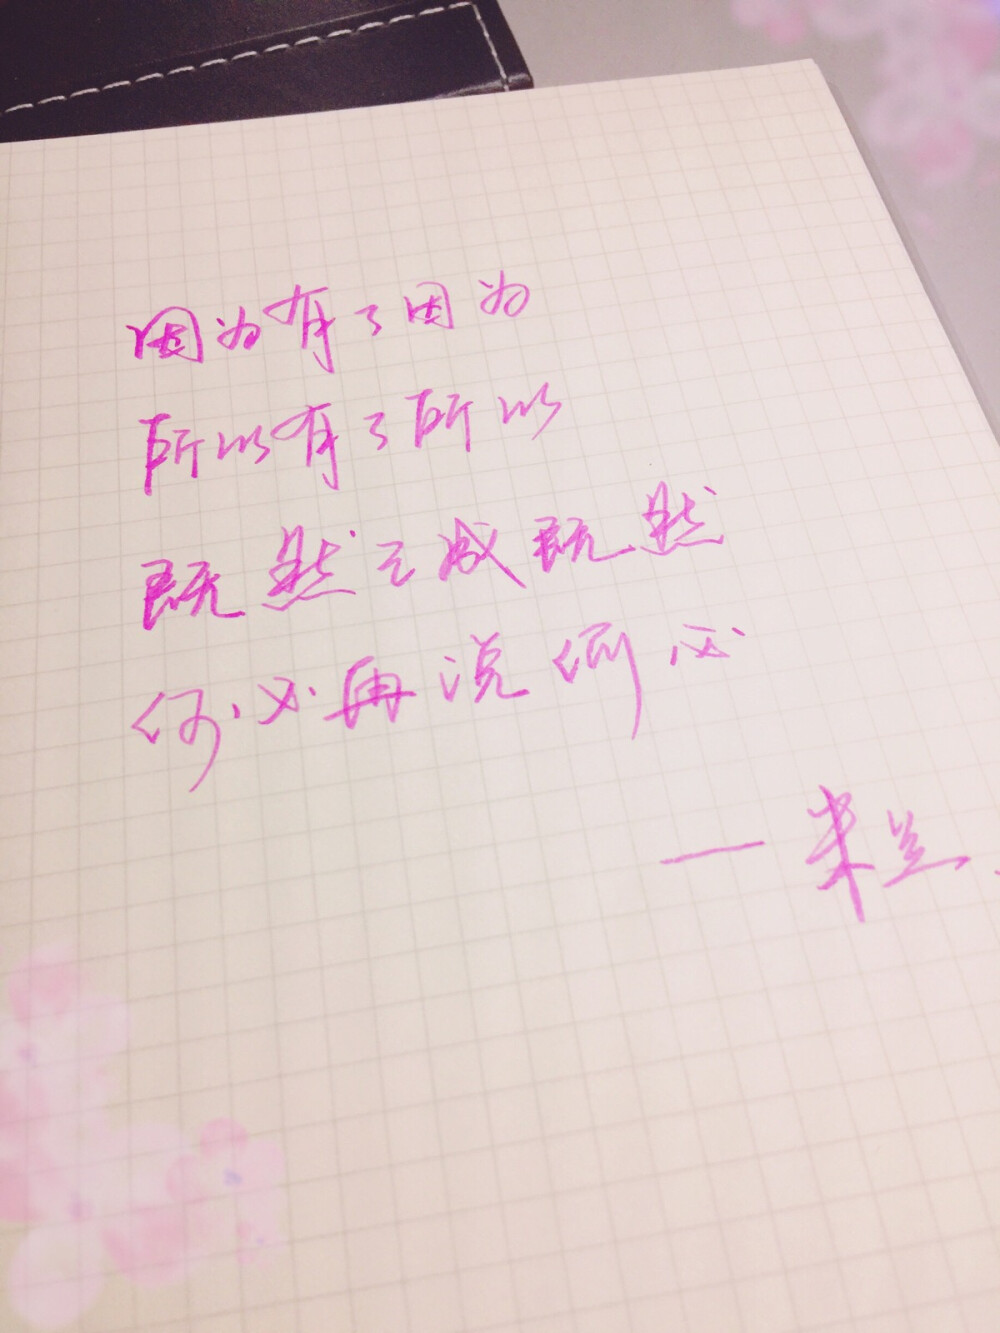 因为有了因为
所以有了所以
既然已成既然
何必再说何必
— 米兰